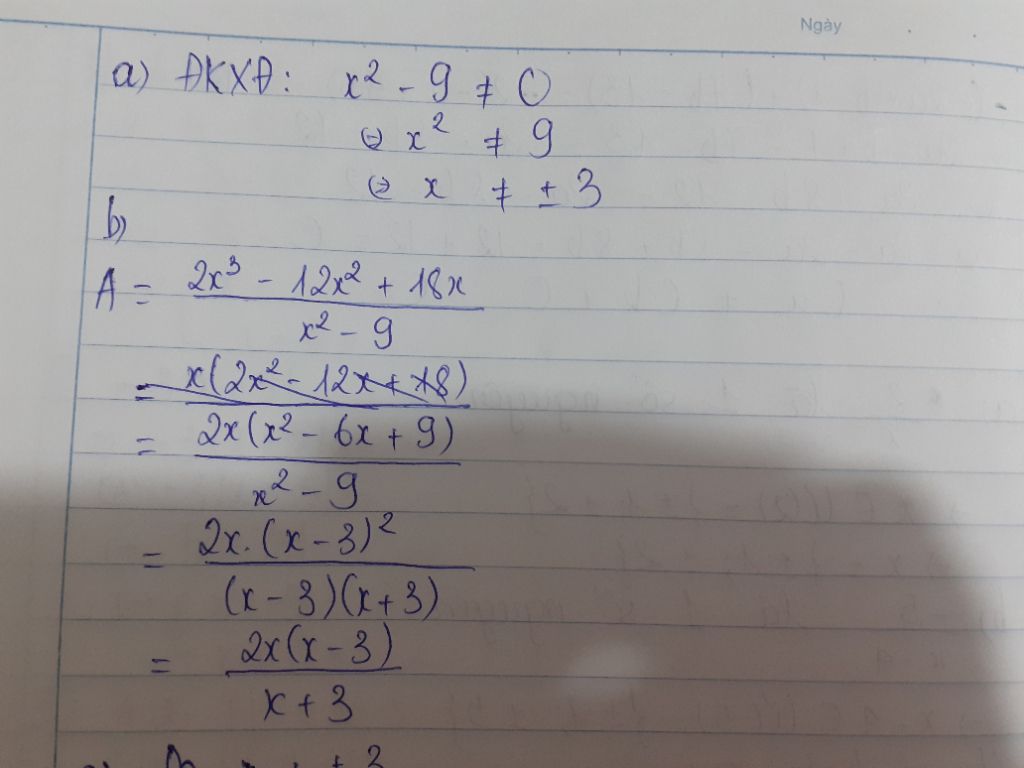 Ngày
a) ĐKXĐ: x² - 9 ≠ 0
⇔ x² ≠ 9
⇔ x ≠ ± 3
b)
A = 2x³ - 12x² + 18x
x² - 9
= x(2x² - 12x + 18)
= 2x(x² - 6x + 9)
x² - 9
= 2x.(x - 3)²
(x - 3)(x + 3)
= 2x(x - 3)
x + 3